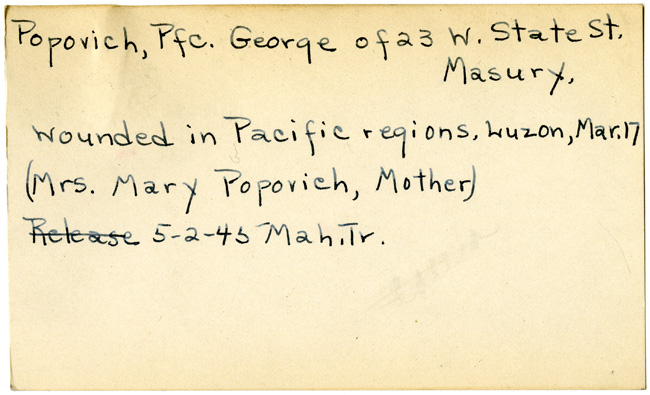 Popovich, Pfc. George of 23 W. State St.
Masury,
wounded in Pacific regions, Luzon, Mar. 17
(Mrs. Mary Popovich, Mother)
Release 5-2-45 Mah. Tr.